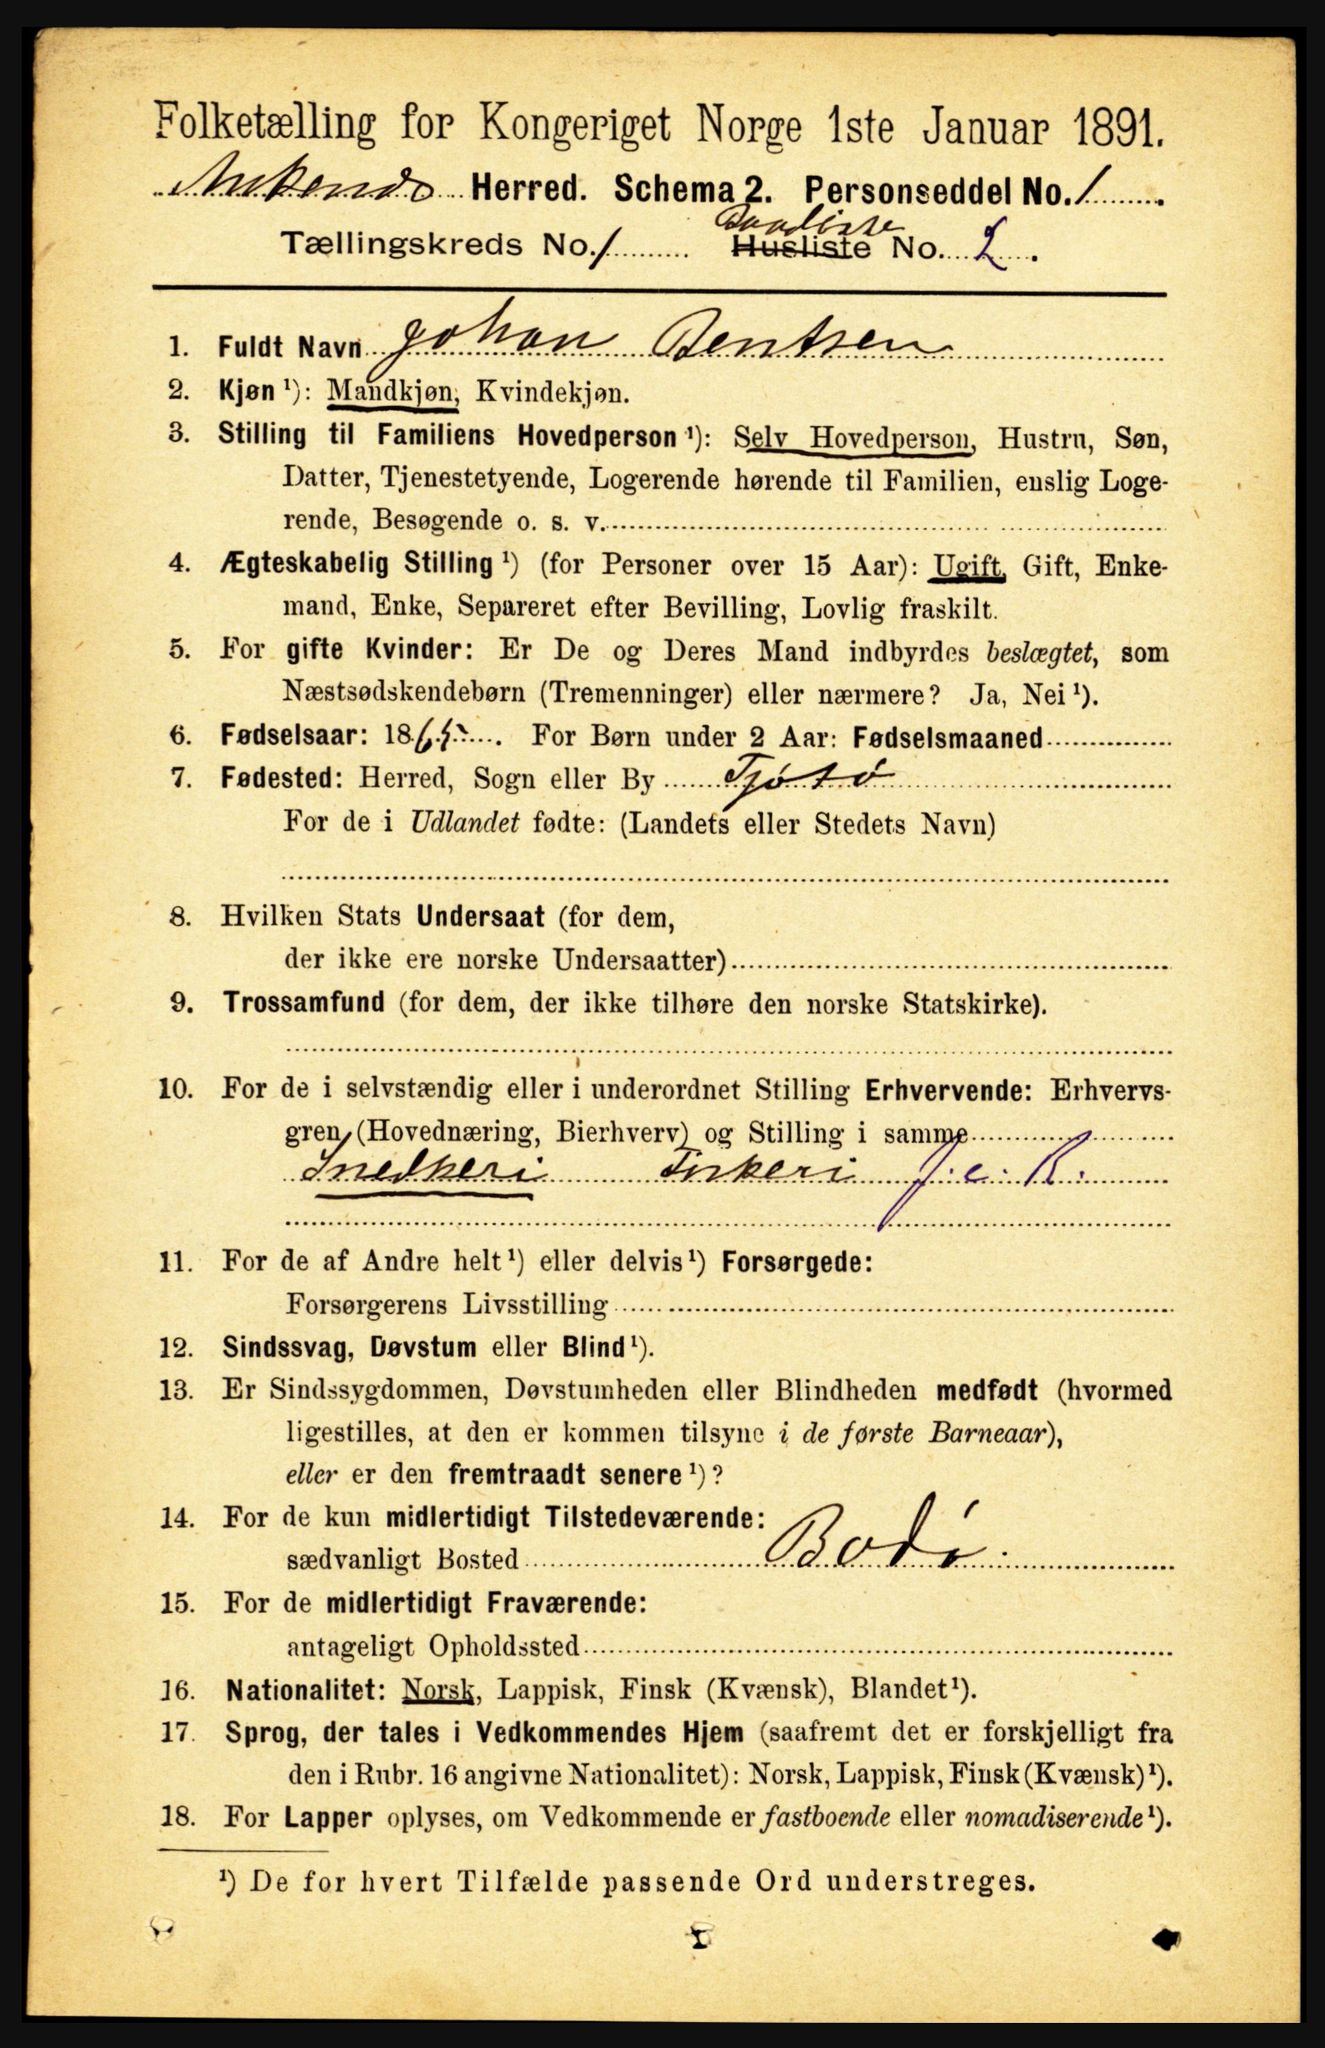 Folketælling for Kongeriget Norge 1ste Januar 1891.
Ankenes Herred. Schema 2. Personseddel No. 1
Baadliste
Tællingskreds No. 1 Husliste No. 2.
1. Fuldt Navn Johan Bentsen
2. Kjøn ¹): Mandkjøn, Kvindekjøn.
3. Stilling til Familiens Hovedperson ¹): Selv Hovedperson, Hustru, Søn,
Datter, Tjenestetyende, Logerende hørende til Familien, enslig Loge-
rende, Besøgende o. s. v.
4. Ægteskabelig Stilling ¹) (for Personer over 15 Aar): Ugift, Gift, Enke-
mand, Enke, Separeret efter Bevilling, Lovlig fraskilt.
5. For gifte Kvinder: Er De og Deres Mand indbyrdes beslægtet, som
Næstsødskendebørn (Tremenninger) eller nærmere? Ja, Nei ¹).
6. Fødselsaar: 1865. For Børn under 2 Aar: Fødselsmaaned
7. Fødested: Herred, Sogn eller By Tjøtø
For de i Udlandet fødte: (Landets eller Stedets Navn)
8. Hvilken Stats Undersaat (for dem,
der ikke ere norske Undersaatter)
9. Trossamfund (for dem, der ikke tilhøre den norske Statskirke).
10. For de i selvstændig eller i underordnet Stilling Erhvervende: Erhvervs-
gren (Hovednæring, Bierhverv) og Stilling i samme
Snedkeri Fiskeri f. e. R.
11. For de af Andre helt ¹) eller delvis ¹) Forsørgede:
Forsørgerens Livsstilling
12. Sindssvag, Døvstum eller Blind ¹).
13. Er Sindssygdommen, Døvstumheden eller Blindheden medfødt (hvormed
ligestilles, at den er kommen tilsyne i de første Barneaar),
eller er den fremtraadt senere ¹)?
14. For de kun midlertidigt Tilstedeværende:
sædvanligt Bosted Bodø.
15. For de midlertidigt Fraværende:
antageligt Opholdssted
16. Nationalitet: Norsk, Lappisk, Finsk (Kvænsk), Blandet ¹).
17. Sprog, der tales i Vedkommendes Hjem (saafremt det er forskjelligt fra
den i Rubr. 16 angivne Nationalitet): Norsk, Lappisk, Finsk (Kvænsk) ¹).
18. For Lapper oplyses, om Vedkommende er fastboende eller nomadiserende ¹).
¹) De for hvert Tilfælde passende Ord understreges.